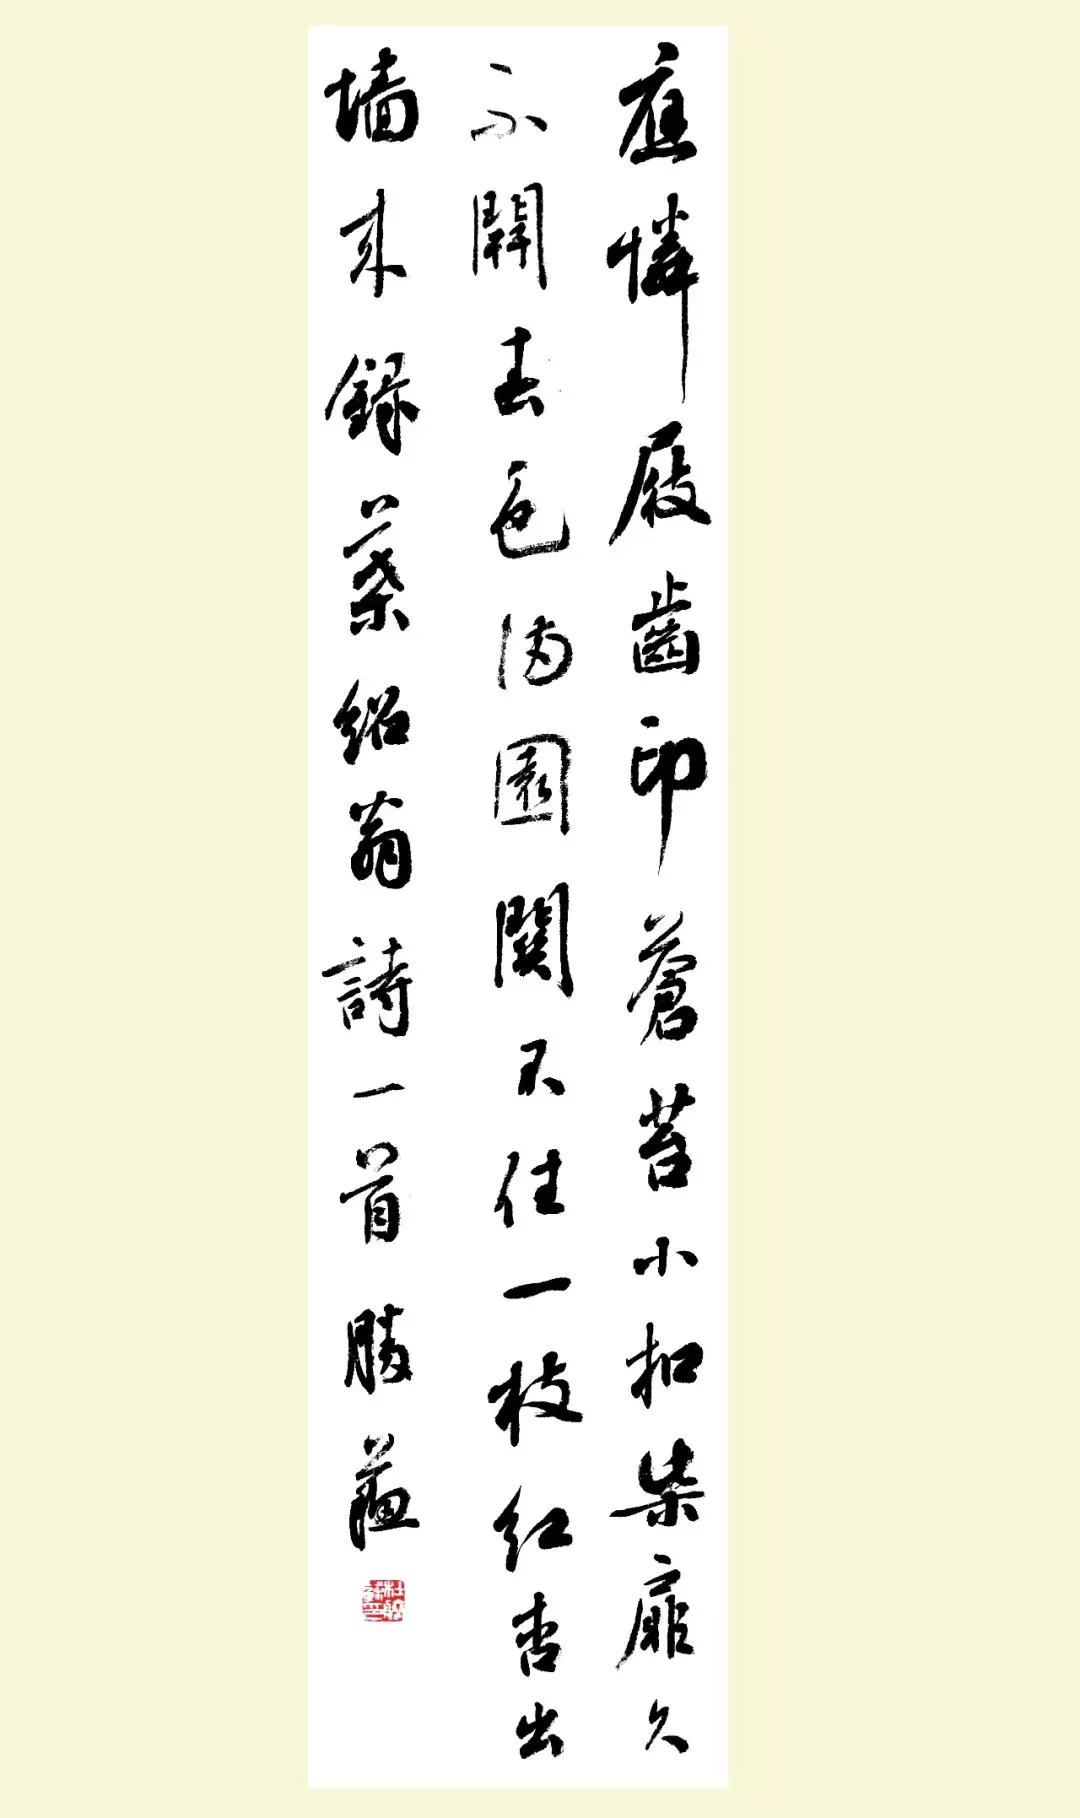 應憐屐齒印蒼苔小扣柴扉久
不開春色滿園關不住一枝紅杏出
墙來録葉紹翁詩一首勝